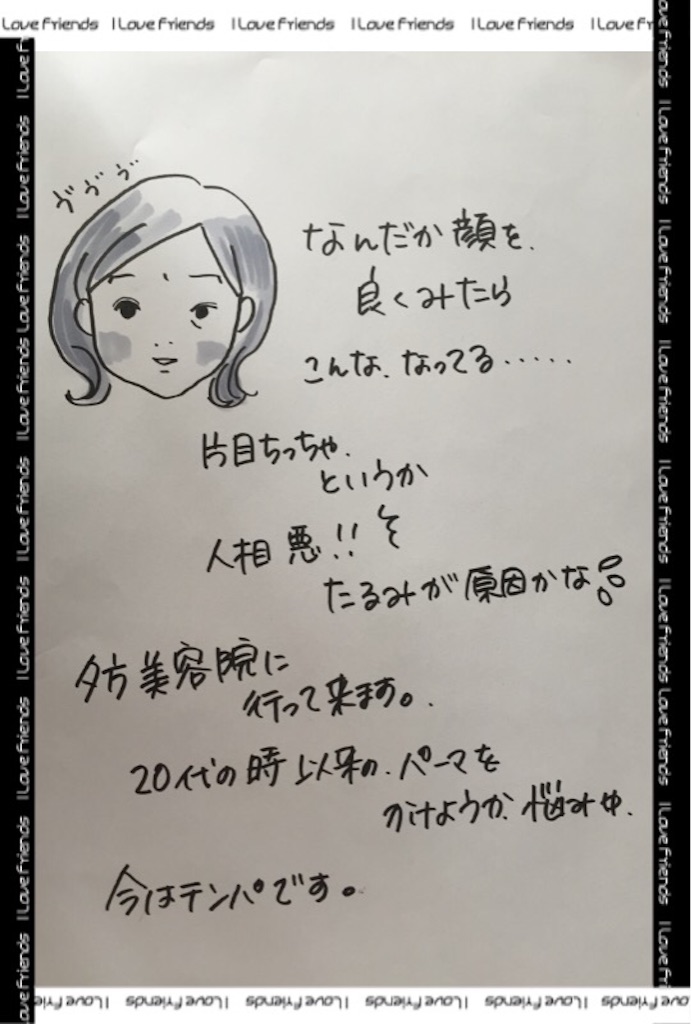 I Love Friends I Love Friends I Love Friends I Love Friends I Love Friends
ヴヴヴ
なんだか顔を、
良くみたら
こんな、なってる・・・・・
片目ちっちゃ、
というか
人相悪!!
たるみが原因かな
夕方美容院に
行って来ます。
20代の時以来の、パーマを
かけようか、悩み中、
今はテンパです。
I Love Friends I Love Friends I Love Friends I Love Friends I Love Friends I Love Friends
I Love Friends I Love Friends I Love Friends I Love Friends I Love Friends I Love Friends I Love Friends I Love Friends
I Love Friends I Love Friends I Love Friends I Love Friends I Love Friends I Love Friends I Love Friends I Love Friends